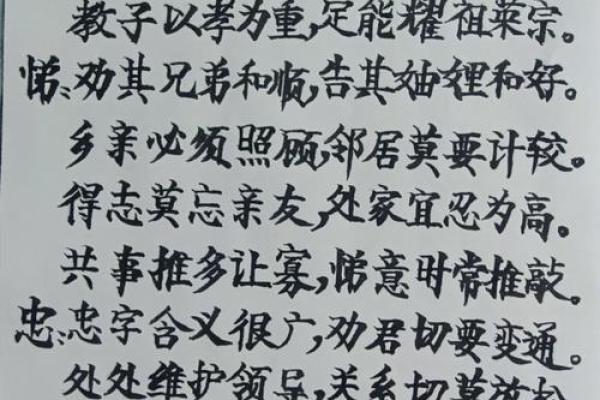 教子以孝为重,定能耀祖荣宗。
悌:劝其兄弟和顺,告其妯娌和好。
乡亲必须照顾,邻居莫要计较。
得志莫忘亲友,处家宜忍为高。
共事推多让寡,悌意时常推敲。
忠:忠字含义很广,劝君切要变通。
处处维护领导,关系切莫放松